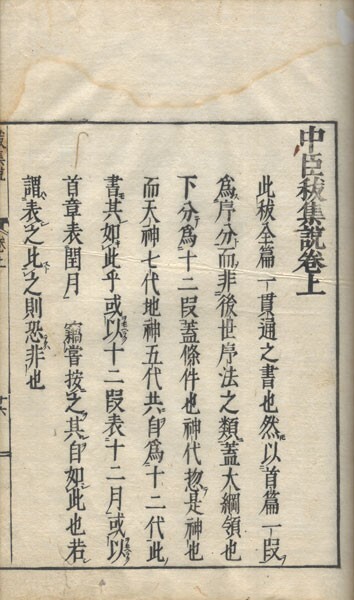 中臣秡集說卷上
此秡全篇一貫通之書也然以首篇一段
爲序分而非後世序法之類蓋大綱領也
下分爲十二段蓋條件也神代惣是神也
而天神七代地神五代共自爲十二代此
書其如此乎或以十二段表十二月或以
首章表閏月 竊嘗按之其自如此也若
謂表之此之則恐非也